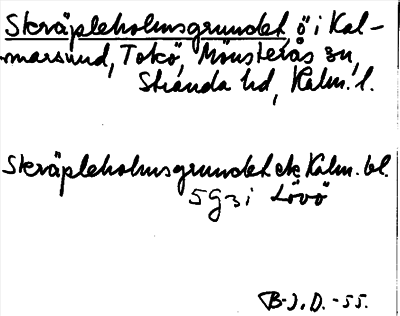 Skräpleholmsgrundet ö i Kal-
marsund, Tokö, Mönsterås sn,
Stranda hd, Kalm. l.
Skräpleholmsgrundet ek Kalm. bl.
5g3i Lövö
B-J.D. -55.